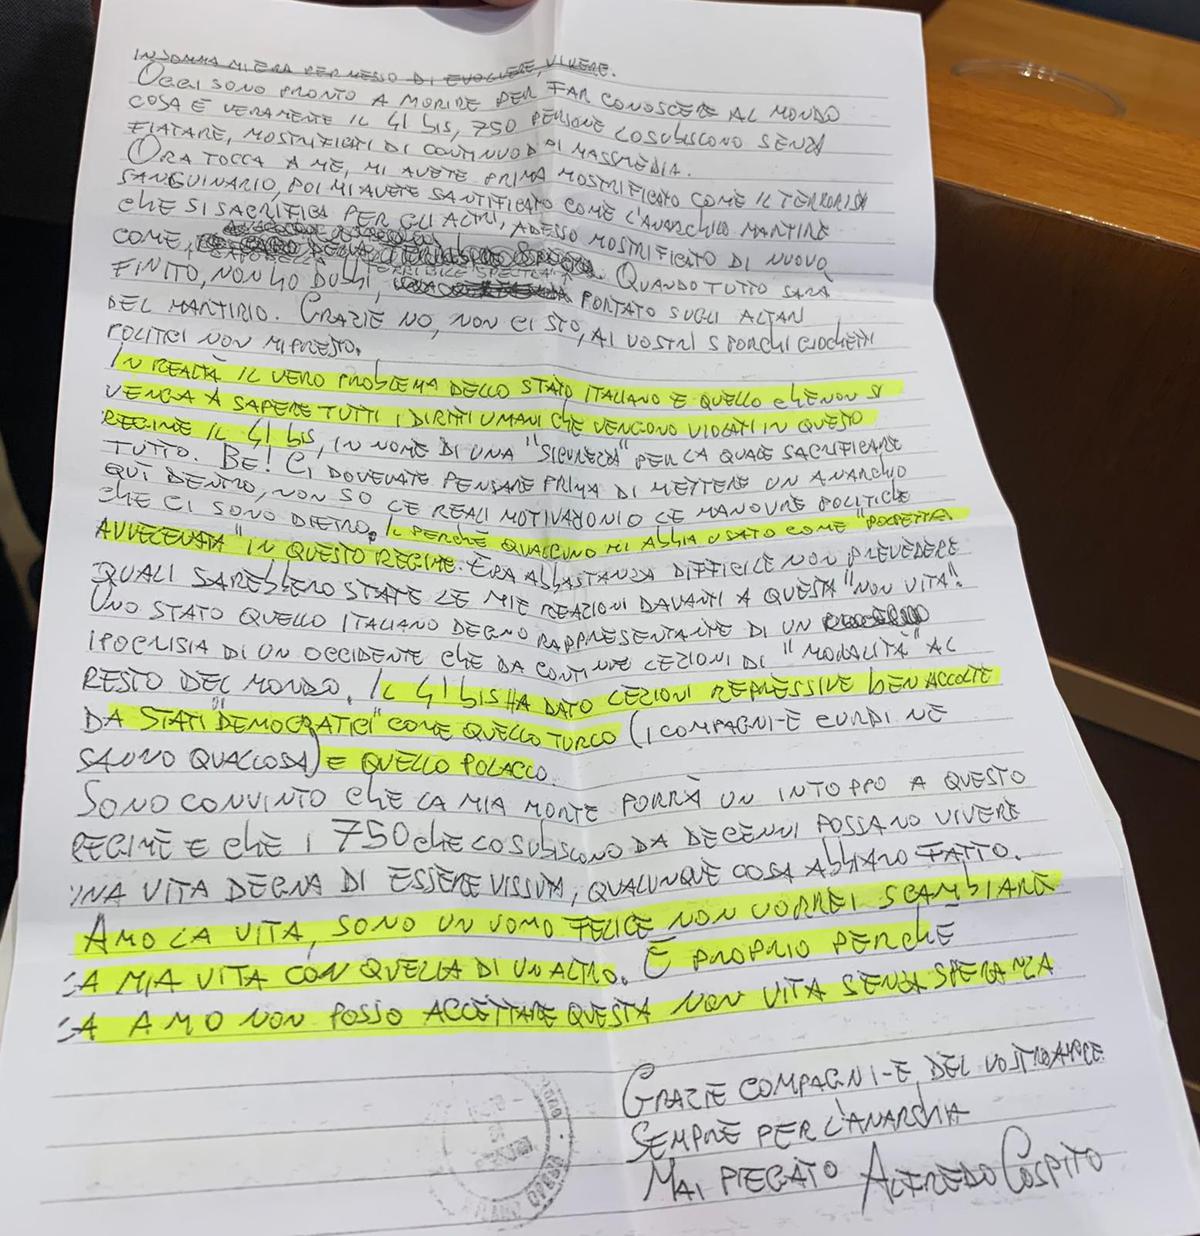 INSOMMA MI ERA PERMESSO DI EVOLVERE, VIVERE.
OGGI SONO PRONTO A MORIRE PER FAR CONOSCERE AL MONDO
COSA È VERAMENTE IL 41 bis, 750 PERSONE LO SUBISCONO SENZA
FIATARE, MOSTRIFICATI DI CONTINUO DAI MASSMEDIA.
ORA TOCCA A ME, MI AVETE PRIMA MOSTRIFICATO COME IL TERRORISTA
SANGUINARIO, POI MI AVETE SANTIFICATO COME L'ANARCHICO MARTIRE
CHE SI SACRIFICA PER GLI ALTRI, ADESSO MOSTRIFICATO DI NUOVO
COME, TERRIBILE SPECTRA. QUANDO TUTTO SARÀ
FINITO, NON HO DUBBI, PORTATO SUGLI ALTARI
DEL MARTIRIO. GRAZIE NO, NON CI STO, AI VOSTRI SPORCHI GIOCHETTI
POLITICI NON MI PRESTO.
IN REALTÀ IL VERO PROBLEMA DELLO STATO ITALIANO È QUELLO CHE NON SI
VENGA A SAPERE TUTTI I DIRITTI UMANI CHE VENGONO VIOLATI IN QUESTO
REGIME IL 41 bis, IN NOME DI UNA "SICUREZZA" PER LA QUALE SACRIFICARE
TUTTO. BE! CI DOVEVATE PENSARE PRIMA DI METTERE UN ANARCHICO
QUI DENTRO, NON SO LE REALI MOTIVAZIONI O LE MANOVRE POLITICHE
CHE CI SONO DIETRO. IL PERCHÈ QUALCUNO MI ABBIA USATO COME "POLPETTA
AVVELENATA" IN QUESTO REGIME. ERA ABBASTANZA DIFFICILE NON PREVEDERE
QUALI SAREBBERO STATE LE MIE REAZIONI DAVANTI A QUESTA "NON VITA".
UNO STATO QUELLO ITALIANO DEGNO RAPPRESENTANTE DI UN
IPOCRISIA DI UN OCCIDENTE CHE DA CONTINUE LEZIONI DI "MODALITÀ" AL
RESTO DEL MONDO. IL 41 bis HA DATO LEZIONI REPRESSIVE BEN ACCOLTE
DA STATI "DEMOCRATICI" COME QUELLO TURCO (I COMPAGNI-E CURDI NE
SANNO QUALCOSA) E QUELLO POLACCO.
SONO CONVINTO CHE LA MIA MORTE PORRÀ UN INTOPPO A QUESTO
REGIME E CHE I 750 CHE LO SUBISCONO DA DECENNI POSSANO VIVERE
UNA VITA DEGNA DI ESSERE VISSUTA, QUALUNQUE COSA ABBIANO FATTO.
AMO LA VITA, SONO UN UOMO FELICE NON VORREI SCAMBIARE
LA MIA VITA CON QUELLA DI UN ALTRO. E PROPRIO PERCHÈ
LA AMO NON POSSO ACCETTARE QUESTA NON VITA SENZA SPERANZA
GRAZIE COMPAGNI-E DEL VOSTRO AMORE
SEMPRE PER L'ANARCHIA
MAI PIEGATO ALFREDO COSPITO